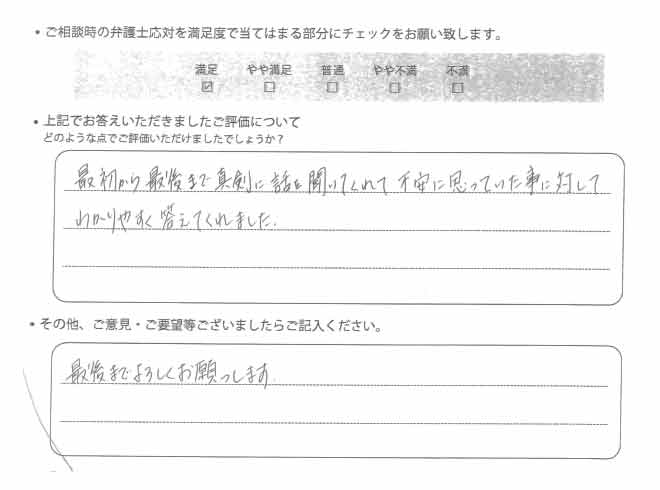 ・ご相談時の弁護士応対を満足度で当てはまる部分にチェックをお願い致します。
満足 やや満足 普通 やや不満 不満
☑ ☐ ☐ ☐ ☐
・上記でお答えいただきましたご評価について
どのような点でご評価いただけましたでしょうか?
最初から最後まで真剣に話を聞いてくれて不安に思っていた事に対して
わかりやすく答えてくれました.
・その他、ご意見・ご要望等ございましたらご記入ください。
最後までよろしくお願いします.